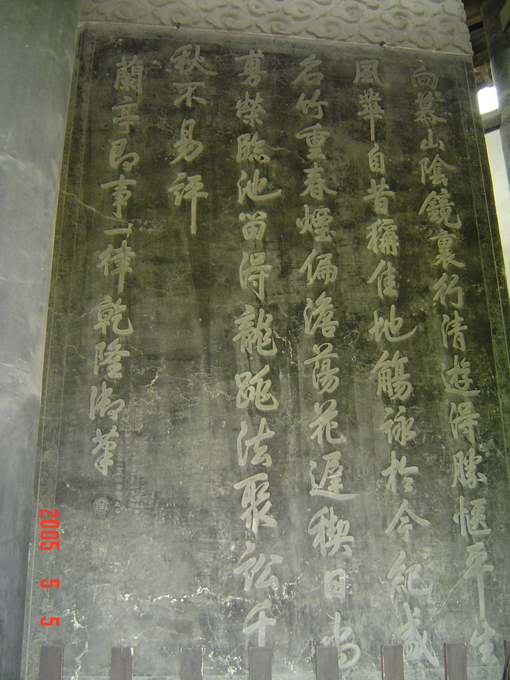 向慕山陰鏡裏行清遊得勝愜平生
風華自昔稱佳地觴詠於今紀盛
名竹重春煙偏澹蕩花遲禊日尚
旉榮臨池留得龍跳法聚訟千
秋不易評
蘭亭即事一律乾隆御筆
2005 5 5